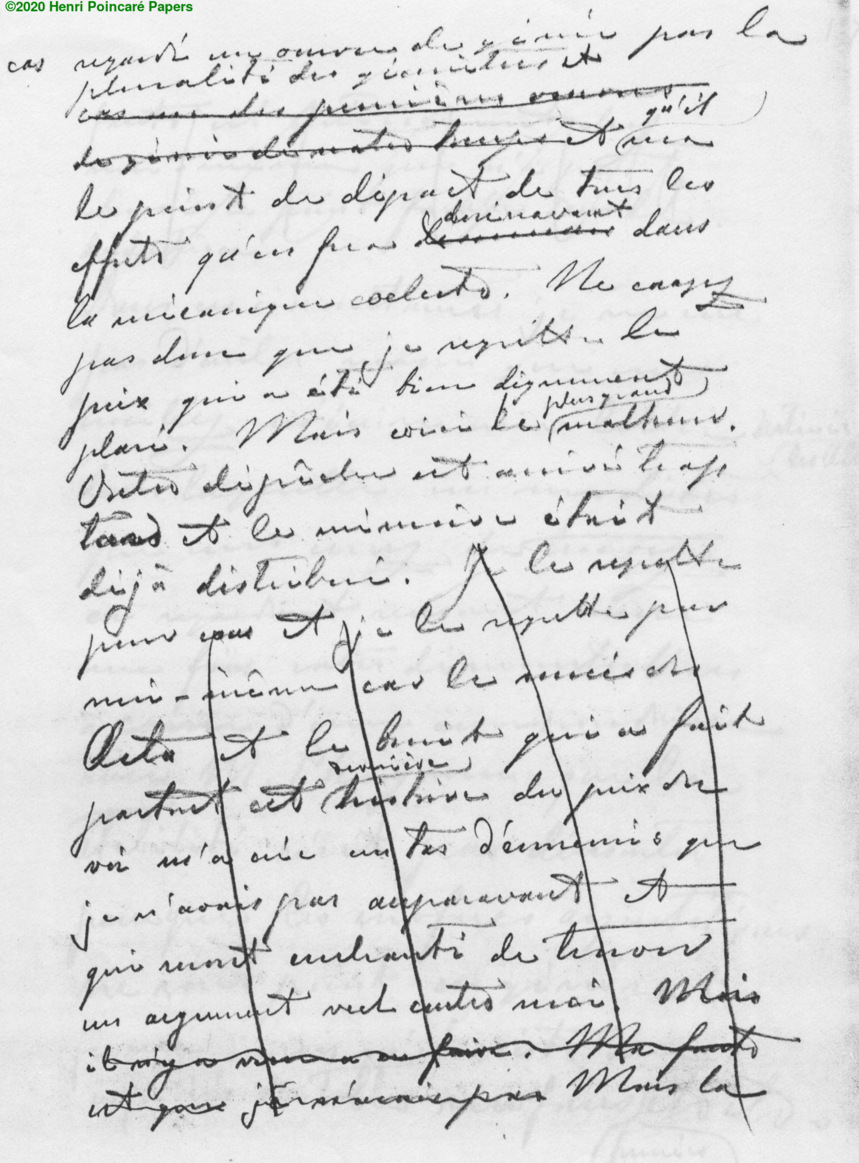 ©2020 Henri Poincaré Papers
cas regardé un œuvre de génie par la
pluralité des géomètres et
cas un des premières œuvres
de génie de notre temps et qu'il
le point de départ de tous les
efforts qu'on fera dorénavant dans
la mécanique coeleste. Ne croyez
pas donc que je regrette le
prix qui a été bien dignement
placé. Mais voici le plus grand malheur.
Votre dépêche est arrivé trop
tard et le mémoire était
déjà distribué. Je le regrette
pour vous et je le regrette pour
moi-même car le succès des
Acta et le bruit qui a fait
partout cet histoire du prix du
roi m'a crée un tas d'ennemis que
je n'avais pas auparavant et
qui sont enchanté de trouver
un argument réel contre moi Mais
il n'y a rien a en faire. Ma faute
est que je Mais la